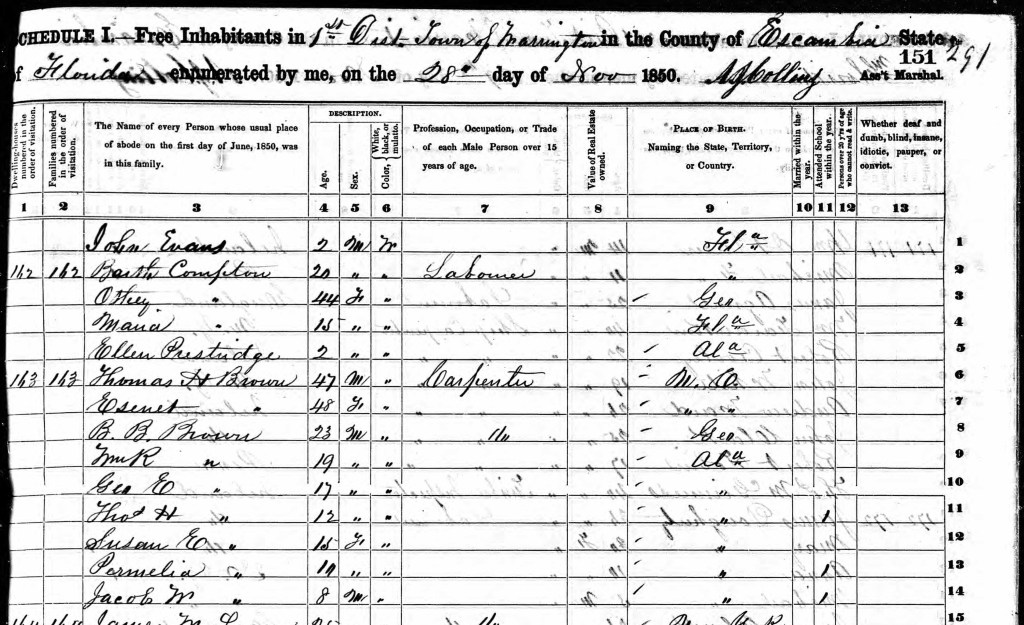 SCHEDULE I.—Free Inhabitants in 1st Dist Town of Warrington in the County of Escambia State
of Florida enumerated by me, on the 28th day of Nov 1850. Ass't Marshal.
151 291
Dwelling-houses numbered in the order of visitation.
Families numbered in the order of visitation.
The Name of every Person whose usual place of abode on the first day of June, 1850, was in this family.
DESCRIPTION.
Age.
Sex.
Color, White, black, or mulatto.
Profession, Occupation, or Trade of each Male Person over 15 years of age.
Value of Real Estate owned.
PLACE OF BIRTH.
Naming the State, Territory, or Country.
Married within the year.
Attended School within the year.
Persons over 20 y'rs of age who cannot read & write.
Whether deaf and dumb, blind, insane, idiotic, pauper, or convict.
1 2 3 4 5 6 7 8 9 10 11 12 13
John Evans 2 M W Fla 1
162 162 Compton 20 " " Labourer " 2
" 44 F " Geo 3
Maria " 15 " " Fla 4
Ellen Prestridge 2 " " Ala 5
163 163 Thomas H Brown 47 M " Carpenter 6
Esenet " 48 F " " " 7
B. B. Brown 23 M " " Geo 8
Wm R " 19 " " Ala 9
Geo E " 17 " " " 10
Thos H " 12 " " " 1 11
Susan E " 15 F " " 12
Permelia " " " " 1 13
Jacob W " 8 M " " 1 14
James M 15